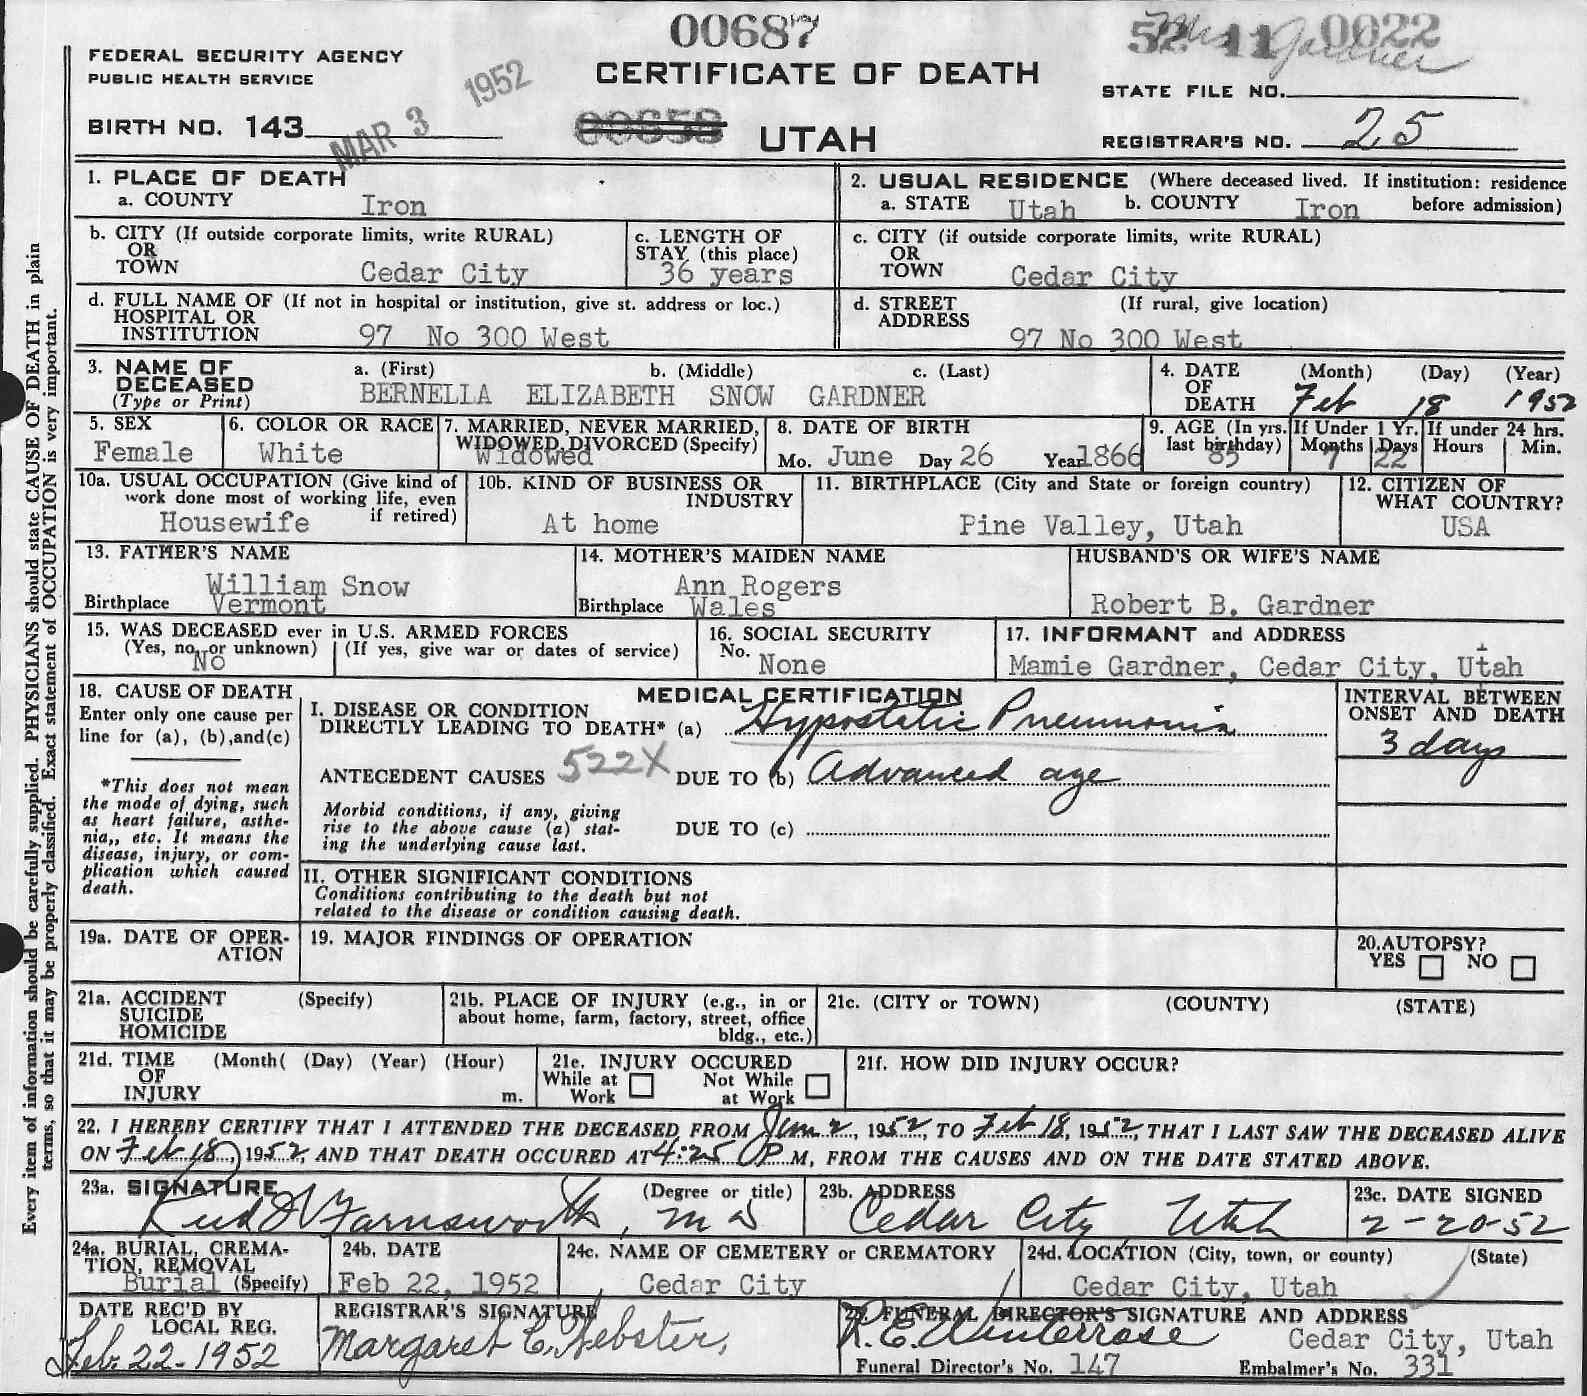 00687
52 11 0022
Mrs Gardner
FEDERAL SECURITY AGENCY
PUBLIC HEALTH SERVICE
CERTIFICATE OF DEATH
STATE FILE NO.
BIRTH NO. 143
MAR 3 1952
00658
UTAH
REGISTRAR'S NO. 25
Every item of information should be carefully supplied. PHYSICIANS should state CAUSE OF DEATH in plain
terms, so that it may be properly classified. Exact statement of OCCUPATION is very important.
1. PLACE OF DEATH
a. COUNTY Iron
2. USUAL RESIDENCE (Where deceased lived. If institution: residence
a. STATE Utah b. COUNTY Iron before admission)
b. CITY (If outside corporate limits, write RURAL)
OR
TOWN Cedar City
c. LENGTH OF
STAY (this place)
36 years
c. CITY (if outside corporate limits, write RURAL)
OR
TOWN Cedar City
d. FULL NAME OF (If not in hospital or institution, give st. address or loc.)
HOSPITAL OR
INSTITUTION 97 No 300 West
d. STREET (If rural, give location)
ADDRESS
97 No 300 West
3. NAME OF a. (First) b. (Middle) c. (Last)
DECEASED
(Type or Print) BERNELLA ELIZABETH SNOW GARDNER
4. DATE (Month) (Day) (Year)
OF
DEATH Feb 18 1952
5. SEX
Female
6. COLOR OR RACE
White
7. MARRIED, NEVER MARRIED,
WIDOWED, DIVORCED (Specify)
Widowed
8. DATE OF BIRTH
Mo. June Day 26 Year 1866
9. AGE (In yrs.
last birthday) 85
If Under 1 Yr.
Months 7 Days 22
If under 24 hrs.
Hours Min.
10a. USUAL OCCUPATION (Give kind of
work done most of working life, even
if retired)
Housewife
10b. KIND OF BUSINESS OR
INDUSTRY
At home
11. BIRTHPLACE (City and State or foreign country)
Pine Valley, Utah
12. CITIZEN OF
WHAT COUNTRY?
USA
13. FATHER'S NAME
William Snow
Birthplace Vermont
14. MOTHER'S MAIDEN NAME
Ann Rogers
Birthplace Wales
HUSBAND'S OR WIFE'S NAME
Robert B. Gardner
15. WAS DECEASED ever in U.S. ARMED FORCES
(Yes, no, or unknown) (If yes, give war or dates of service)
No
16. SOCIAL SECURITY
No. None
17. INFORMANT and ADDRESS
Mamie Gardner, Cedar City, Utah
18. CAUSE OF DEATH
Enter only one cause per
line for (a), (b),and(c)
*This does not mean
the mode of dying, such
as heart failure, asthe-
nia,, etc. It means the
disease, injury, or com-
plication which caused
death.
MEDICAL CERTIFICATION
I. DISEASE OR CONDITION
DIRECTLY LEADING TO DEATH* (a) Hypostatic Pneumonia
ANTECEDENT CAUSES 522X DUE TO (b) Advanced age
Morbid conditions, if any, giving
rise to the above cause (a) stat-
ing the underlying cause last.
DUE TO (c)
INTERVAL BETWEEN
ONSET AND DEATH
3 days
II. OTHER SIGNIFICANT CONDITIONS
Conditions contributing to the death but not
related to the disease or condition causing death.
19a. DATE OF OPER-
ATION
19. MAJOR FINDINGS OF OPERATION
20.AUTOPSY?
YES NO
21a. ACCIDENT (Specify)
SUICIDE
HOMICIDE
21b. PLACE OF INJURY (e.g., in or
about home, farm, factory, street, office
bldg., etc.)
21c. (CITY or TOWN) (COUNTY) (STATE)
21d. TIME (Month( (Day) (Year) (Hour)
OF
INJURY m.
21e. INJURY OCCURED
While at Work Not While at Work
21f. HOW DID INJURY OCCUR?
22. I HEREBY CERTIFY THAT I ATTENDED THE DECEASED FROM Jan 2, 1952, TO Feb 18, 1952, THAT I LAST SAW THE DECEASED ALIVE
ON Feb 18, 1952, AND THAT DEATH OCCURED AT 4:25 P M, FROM THE CAUSES AND ON THE DATE STATED ABOVE.
23a. SIGNATURE (Degree or title)
Farnsworth, MD
23b. ADDRESS
Cedar City Utah
23c. DATE SIGNED
2-20-52
24a. BURIAL, CREMA-
TION, REMOVAL
Burial (Specify)
24b. DATE
Feb 22, 1952
24c. NAME OF CEMETERY or CREMATORY
Cedar City
24d. LOCATION (City, town, or county) (State)
Cedar City, Utah
DATE REC'D BY
LOCAL REG.
Feb. 22-1952
REGISTRAR'S SIGNATURE
Margaret C. Webster,
25. FUNERAL DIRECTOR'S SIGNATURE AND ADDRESS
R.E. Winterrose Cedar City, Utah
Funeral Director's No. 147 Embalmer's No. 331